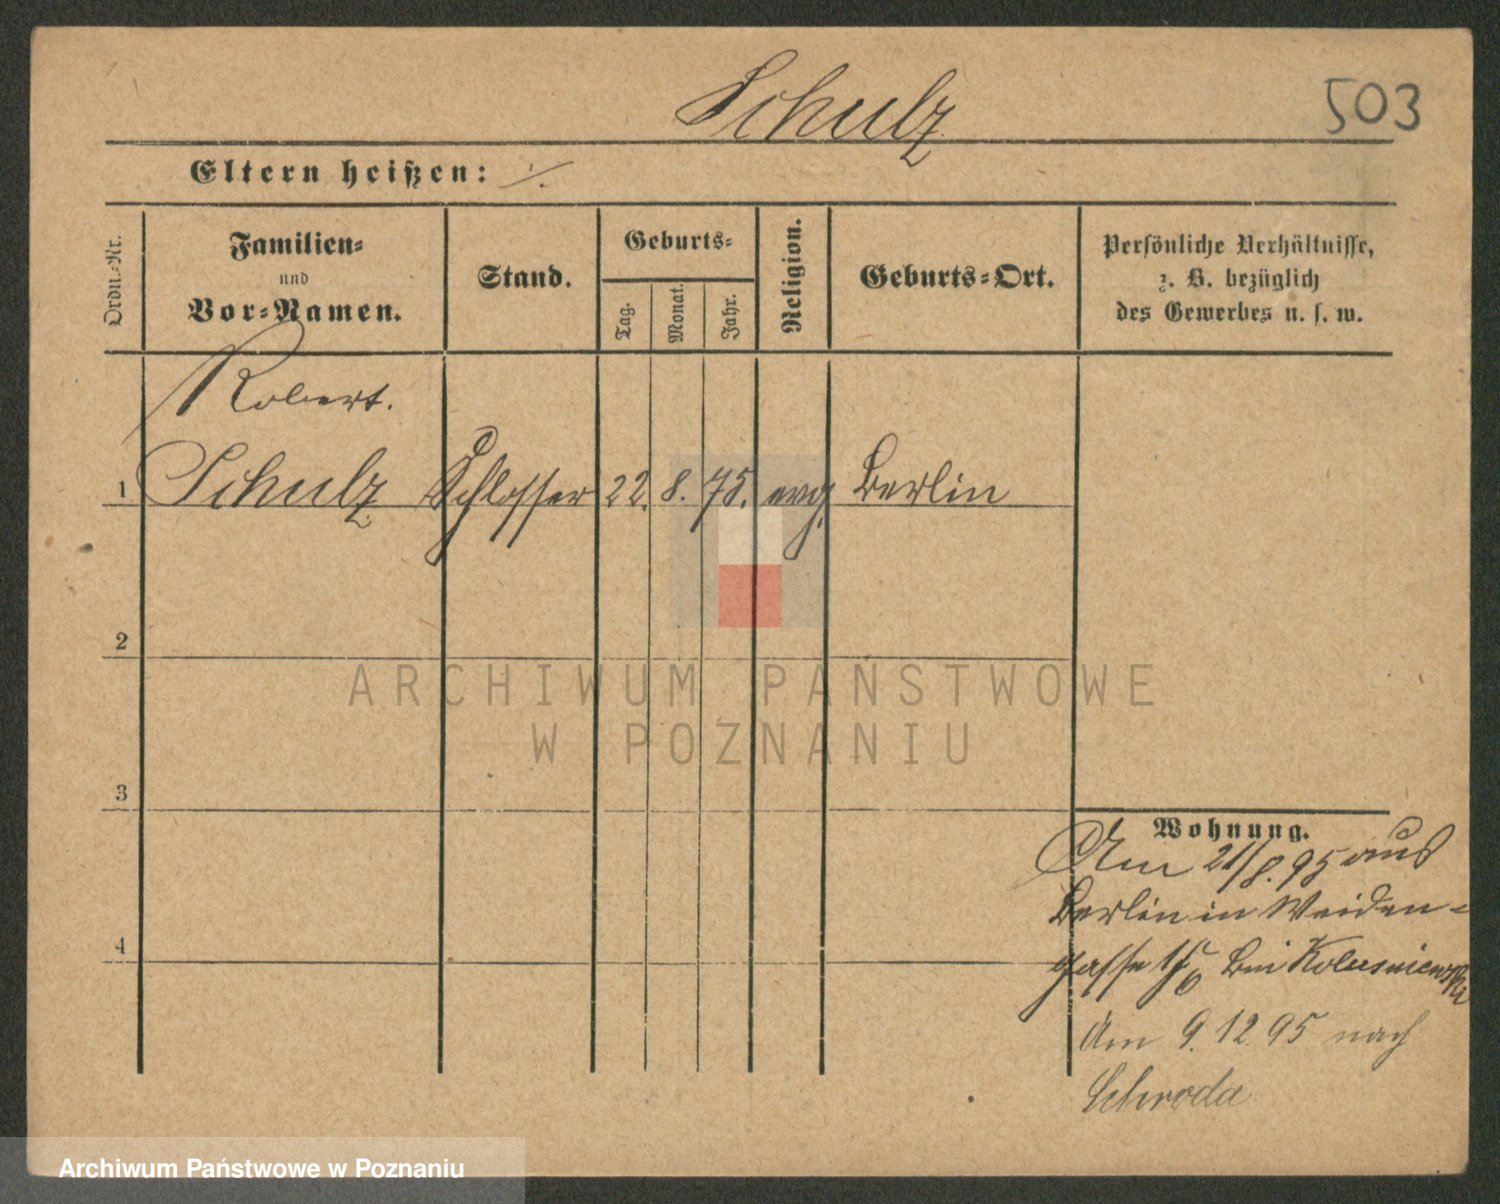 Schulz
503
Eltern heißen: ./.
Ordn.-Nr.
Familien-
und
Vor-Namen.
Stand.
Geburts-
Tag.
Monat.
Jahr.
Religion.
Geburts-Ort.
Persönliche Verhältnisse,
z. B. bezüglich
des Gewerbes u. s. w.
Robert.
1 Schulz Schlosser 22. 8. 75. evg. Berlin
2
3
4
Wohnung.
Am 21/8.95 aus
Berlin in Weiden-
gasse bei
Am 9.12.95 nach
Schroda
ARCHIWUM PAŃSTWOWE
W POZNANIU
Archiwum Państwowe w Poznaniu